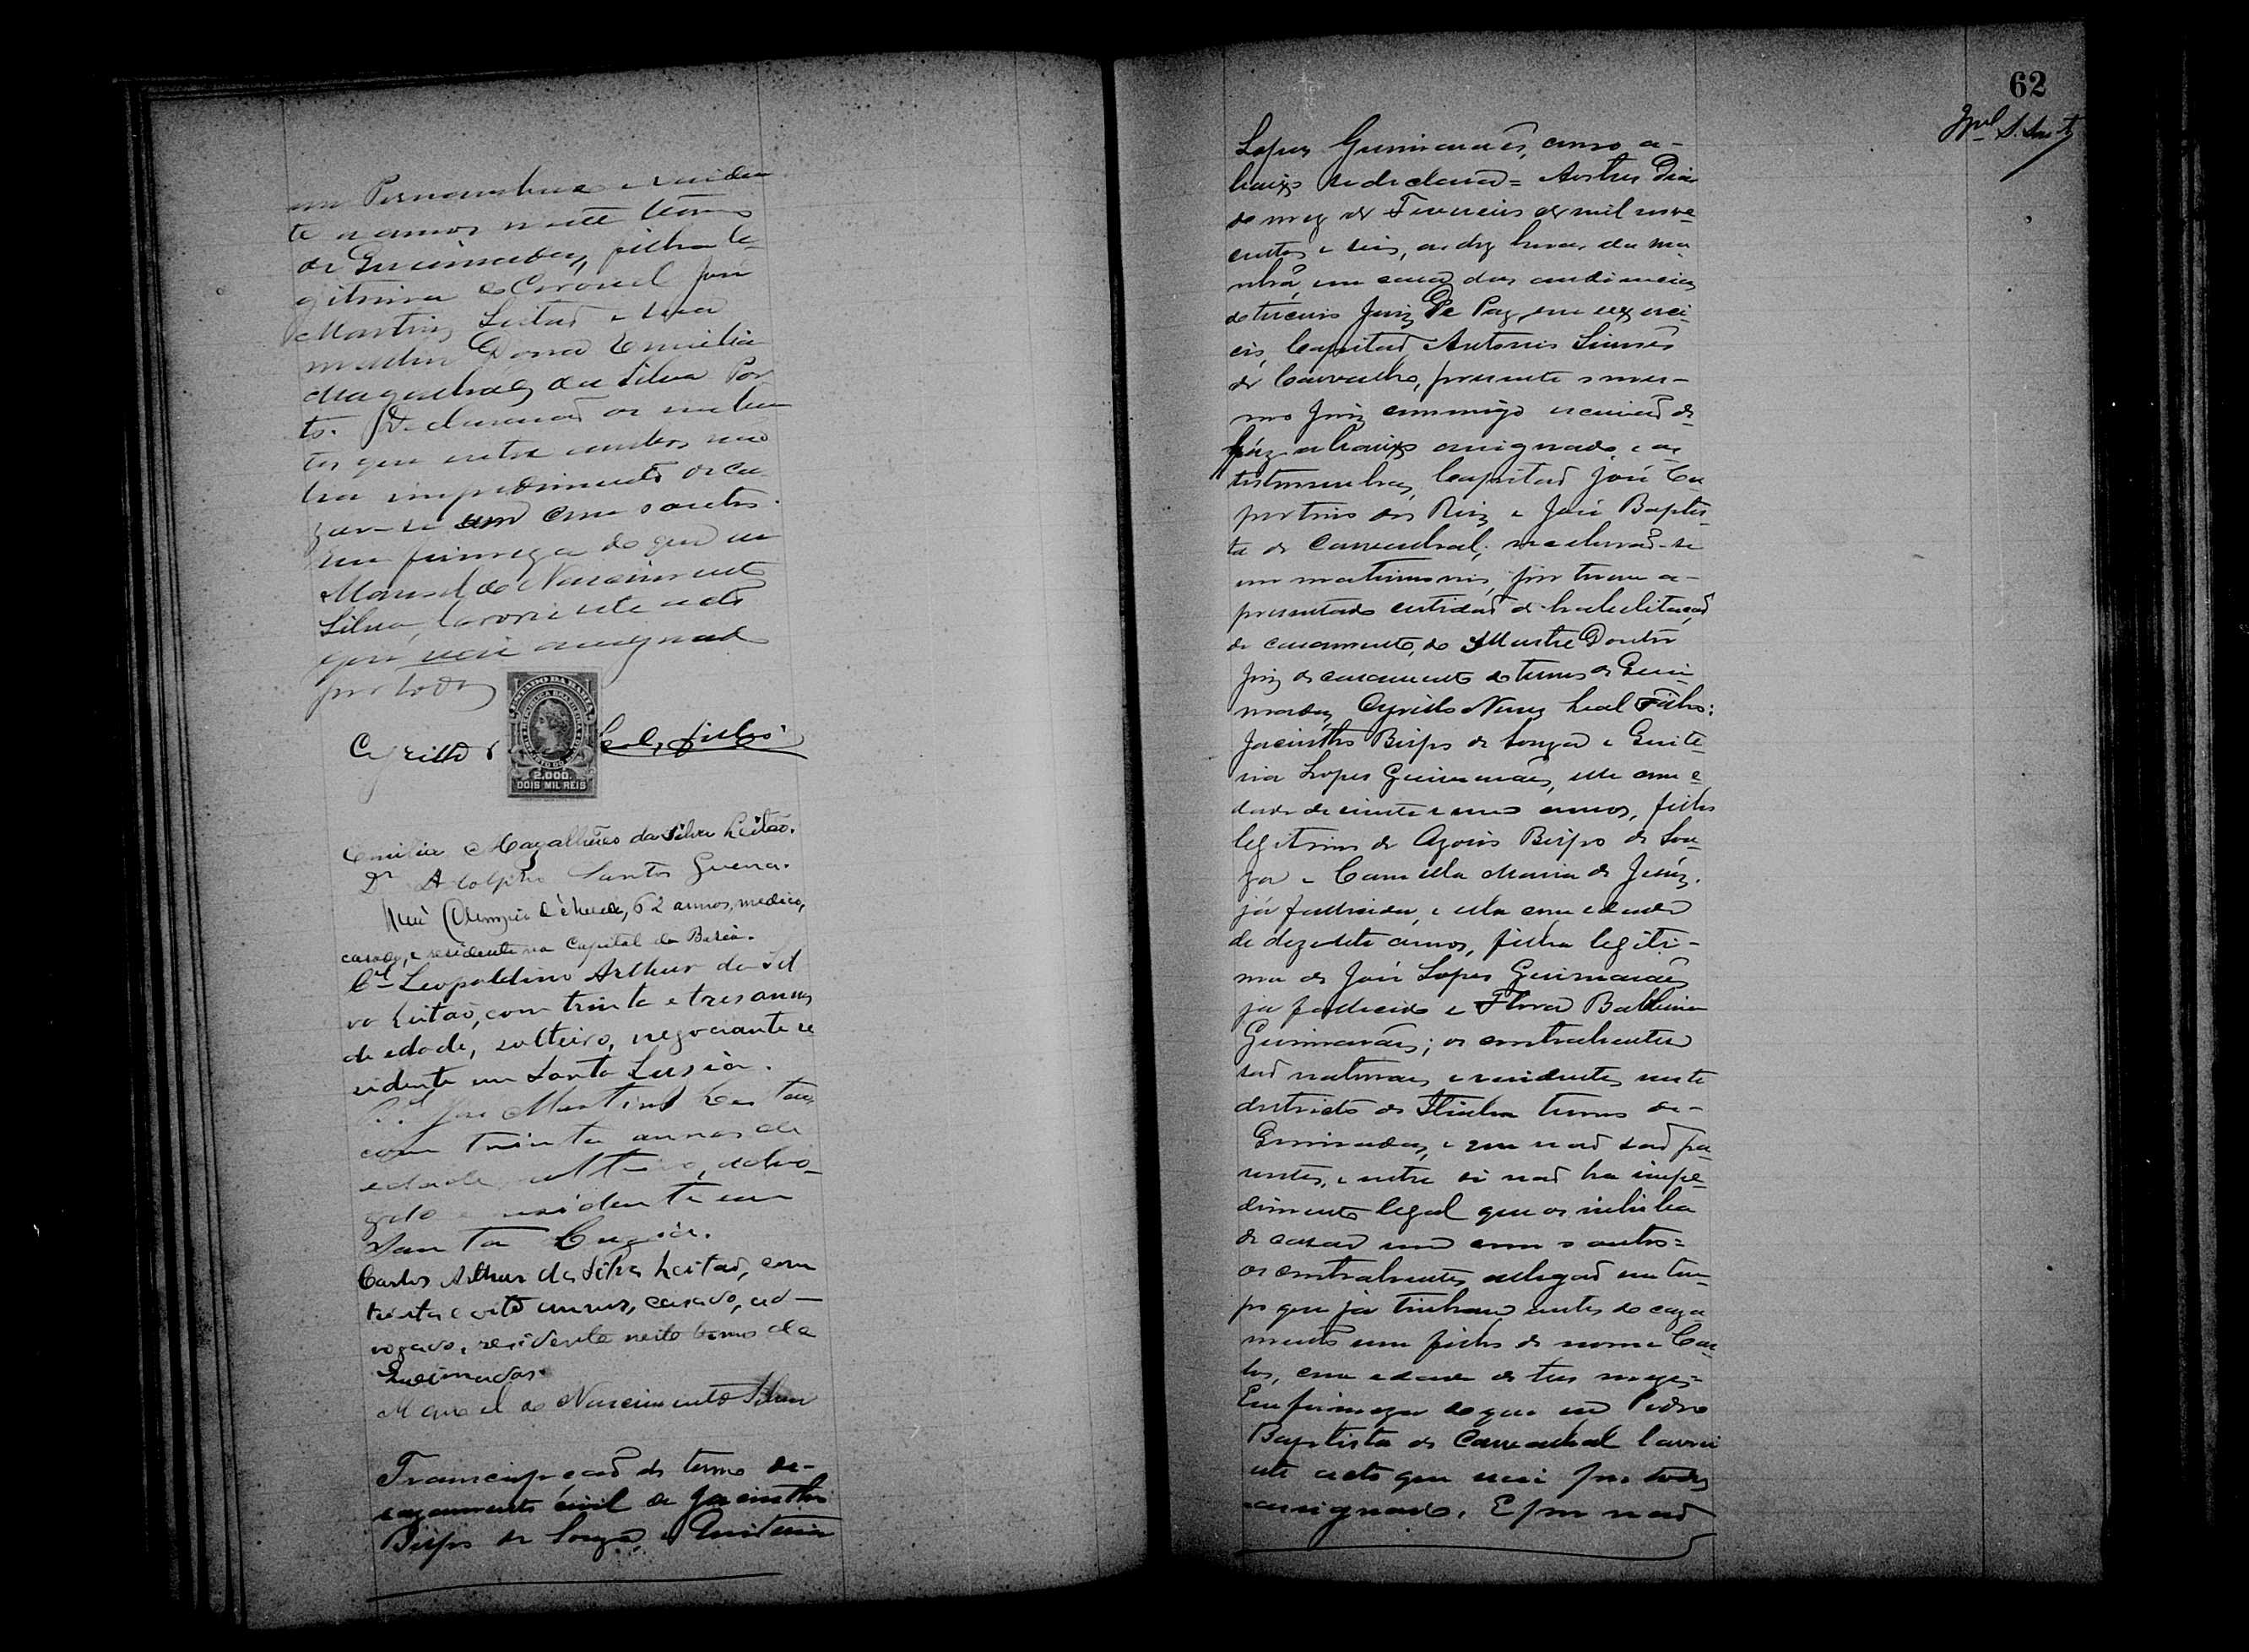 em Pernambuco e residen
te a annos neste termo
de Queimadas, filha le-
gitima do Coronel José
Martins Leitaõ e sua
mulher Dona Emilia
Magalhaẽs da Silva Por
to. Declararaõ os nuben
tes que entre ambos naõ
ha impedimento de ca-
zar-se um com o outro.
Em firmeza do que eu
Manoel do Nascimento
Silva, lavrei este acto
que vai assignado
por todos
Cyrillo Leal, filho.
ESTADO DA BAHIA
2.000.
DOIS MIL REIS
Emilia Magalhães da Silva Leitão.
Dr Adolpho Santos Guerra.
José Olimpio d'Azevedo, 62 annos, medico,
casado, e residente na Capital da Bahia.
Cel Leopoldino Arthur da Sil
va Leitão, com trinta e tres annos
de edade, solteiro, negociante re
sidente em Santa Lusia.
José Martins Leitão
com trinta annos de
edade, solteiro, advo-
gado e residente em
Santa Luzia.
Carlos Arthur da Silva Leitaõ, com
trinta e oito annos, casado, ad-
vogado, residente neste termo de
Queimadas.
Manoel do Nascimento Silva
Transcripçaõ do termo de-
cazamento civil de Jacintho
Bispo de Souza, e Quiteria
62
Lopes Guimaraẽs, como a-
baixo se declara= Aos tres dias
do mez de Fevereiro de mil nove-
centos e seis, as dez horas da ma
nhã, em casa das audiencias
do terceiro Juiz de Paz, em exerci-
cio, Capitaõ Antonio Simoẽs
de Carvalho, presente o mes-
mo Juiz commigo escrivaõ de
páz abaixo assignado, e as
testemunhas, Capitaõ José Ca
pertino dos Reis e José Baptis-
ta de Carvalhal; receberaõ-se
em matrimonio, por terem a-
presentado certidaõ de habelitaçaõ
de casamento, do Illustre Doutor
Juiz de casamento do termo de Quei
madas, Cyrillo Nunes Leal Filho:
Jacintho Bispo de Souza e Quite-
ria Lopes Guimaraẽs, elle com e
dade de vinte e um annos, filho
legitimo de Bispo de Sou-
za e Camilla Maria de Jesúz.
já fallecida, e ella com edade
de dezesete annos, filha legiti-
ma de José Lopes Guimaraẽs
ja fallecido e Flora Balbina
Guimaraẽs; os contrahentes
saõ naturaes, e residentes neste
destricto de Itiuba termo de-
Queimadas, e que naõ saõ pa-
rentes, e entre si naõ ha impe-
dimento legal que os inhiba
de casar um com o outro=
os contrahentes allegaõ em tem-
po que ja tinham antes do caza
mento um filho de nome Car
los, com edade de tres mezes=
Em firmeza do que eu Pedro
Baptista de Carvalhal lavrei
este acto que vai por todos
assignado. E por naõ